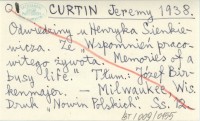 CURTIN Jeremy 1938.
Odwiedziny u Henryka Sienkie-
wicza. Ze "Wspomnień praco-
witego żywota. Memories of a
busy life." Tłum. Józef Bir-
kenmajer. — Milwaukee, Wis.
Druk "Nowin Polskich". Ss. 12.